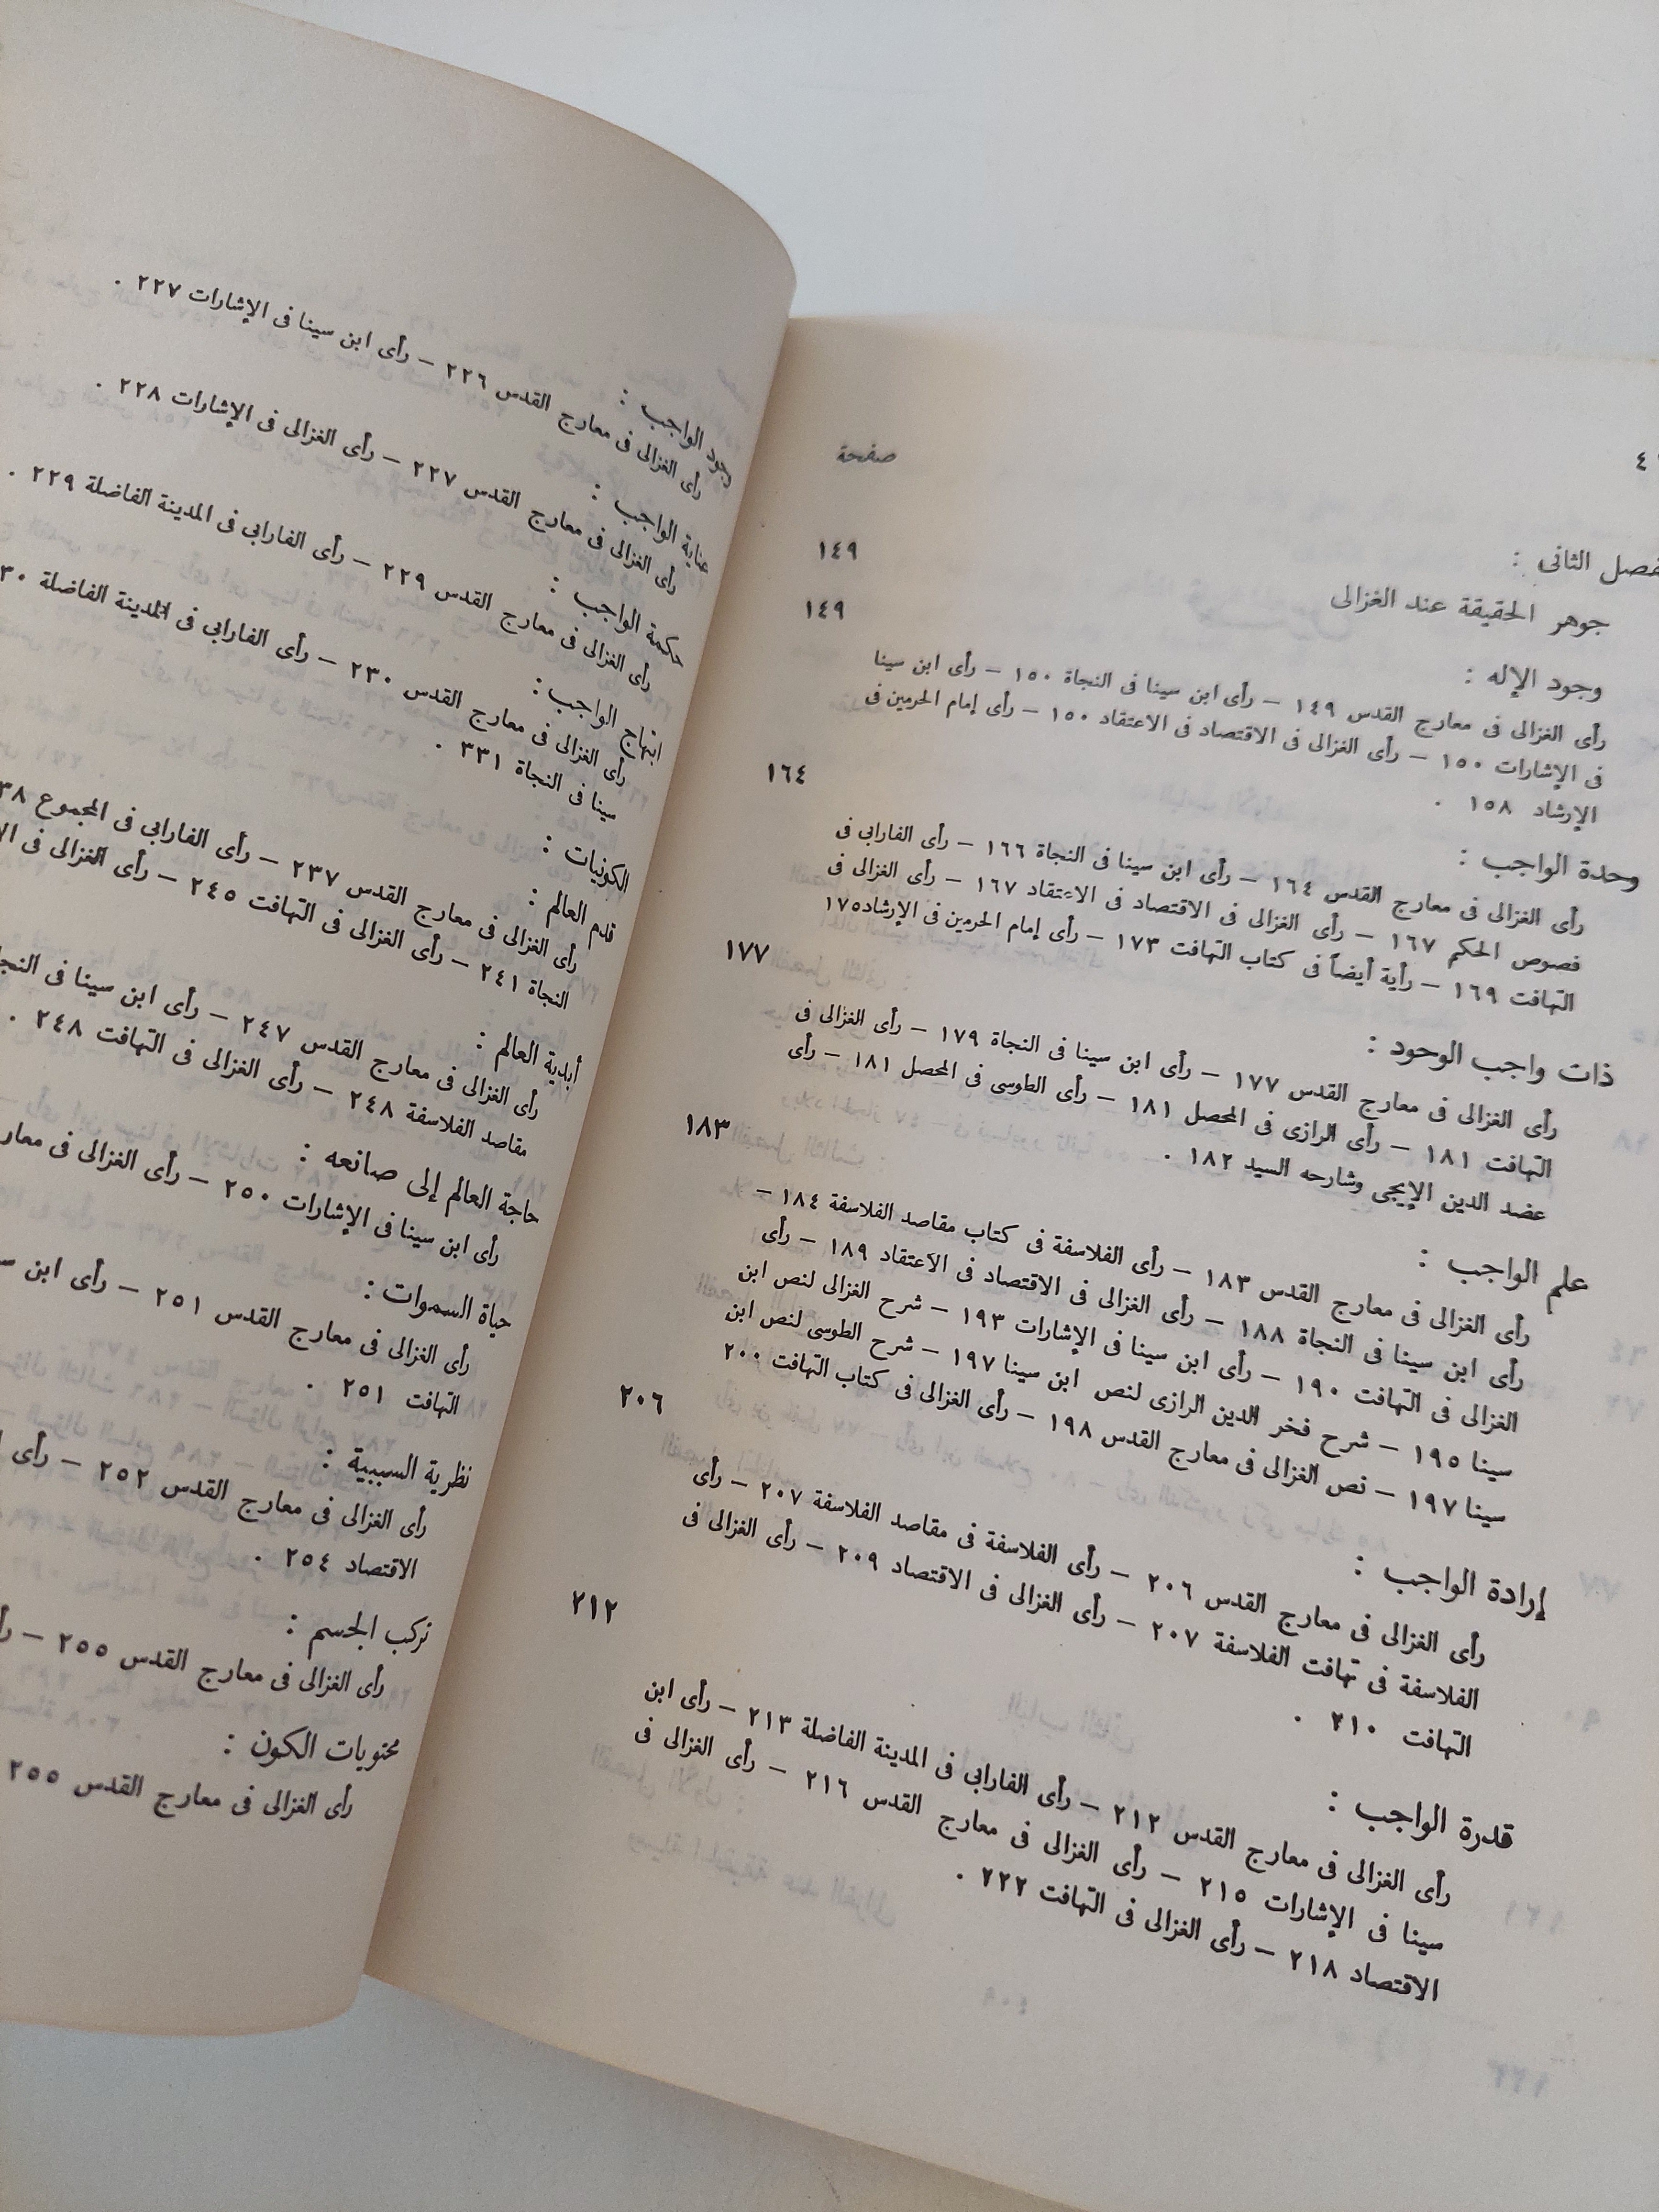 صفحة
الثانى :
١٤٩
جوهر الحقيقة عند الغزالى
١٤٩
وجود الإله :
رأى الغزالى فى معارج القدس ١٤٩ – رأى ابن سينا فى النجاة ١٥٠ – رأى ابن سينا
فى الإشارات ١٥٠ – رأى الغزالى فى الاقتصاد فى الاعتقاد ١٥٠ – رأى إمام الحرمين فى
الإرشاد ١٥٨ .
وحدة الواجب :
١٦٤
رأى الغزالى فى معارج القدس ١٦٤ – رأى ابن سينا فى النجاة ١٦٦ – رأى الفارابى فى
فصوص الحكم ١٦٧ – رأى الغزالى فى الاقتصاد فى الاعتقاد ١٦٧ – رأى الغزالى فى
التهافت ١٦٩ – رأية أيضاً فى كتاب التهافت ١٧٣ – رأى إمام الحرمين فى الإرشاد١٧٥
ذات واجب الوحود :
١٧٧
رأى الغزالى فى معارج القدس ١٧٧ – رأى ابن سينا فى النجاة ١٧٩ – رأى الغزالى فى
التهافت ١٨١ – رأى الرازى فى المحصل ١٨١ – رأى الطوسى فى المحصل ١٨١ – رأى
عضد الدين الإيجى وشارحه السيد ١٨٢ .
علم الواجب :
١٨٣
رأى الغزالى فى معارج القدس ١٨٣ – رأى الفلاسفة فى كتاب مقاصد الفلاسفة ١٨٤ –
رأى ابن سينا فى النجاة ١٨٨ – رأى الغزالى فى الاقتصاد فى الاعتقاد ١٨٩ – رأى
الغزالى فى التهافت ١٩٠ – رأى ابن سينا فى الإشارات ١٩٣ – شرح الغزالى لنص ابن
سينا ١٩٥ – شرح فخر الدين الرازى لنص ابن سينا ١٩٧ – شرح الطوسى لنص ابن
سينا ١٩٧ – نص الغزالى فى معارج القدس ١٩٨ – رأى الغزالى فى كتاب التهافت ٢٠٠
إرادة الواجب :
٢٠٦
رأى الغزالى فى معارج القدس ٢٠٦ – رأى الفلاسفة فى مقاصد الفلاسفة ٢٠٧ – رأى
الفلاسفة فى تهافت الفلاسفة ٢٠٧ – رأى الغزالى فى الاقتصاد ٢٠٩ – رأى الغزالى فى
التهافت ٢١٠ .
قدرة الواجب :
٢١٢
رأى الغزالى فى معارج القدس ٢١٢ – رأى الفارابى فى المدينة الفاضلة ٢١٣ – رأى ابن
سينا فى الإشارات ٢١٥ – رأى الغزالى فى معارج القدس ٢١٦ – رأى الغزالى فى
الاقتصاد ٢١٨ – رأى الغزالى فى التهافت ٢٢٢ .
وجود الواجب :
رأى الغزالى فى معارج القدس ٢٢٦ – رأى ابن سينا فى الإشارات ٢٢٧ .
عناية الواجب :
رأى الغزالى فى معارج القدس ٢٢٧ – رأى الغزالى فى الإشارات ٢٢٨ .
حكمة الواجب :
رأى الغزالى فى معارج القدس ٢٢٩ – رأى الفارابى فى المدينة الفاضلة ٢٢٩ .
ابتهاج الواجب :
رأى الغزالى فى معارج القدس ٢٣٠ – رأى الفارابى فى المدينة الفاضلة
سينا فى النجاة ٣٣١ .
الكونيات :
قدم العالم :
رأى الغزالى فى معارج القدس ٢٣٧ – رأى الفارابى فى المجموع
النجاة ٢٤١ – رأى الغزالى فى التهافت ٢٤٥ – رأى الغزالى فى
أبدية العالم :
رأى الغزالى فى معارج القدس ٢٤٧ – رأى ابن سينا فى
مقاصد الفلاسفة ٢٤٨ – رأى الغزالى فى التهافت ٢٤٨ .
حاجة العالم إلى صانعه :
رأى ابن سينا فى الإشارات ٢٥٠ – رأى الغزالى فى
حياة السموات :
رأى الغزالى فى معارج القدس ٢٥١ – رأى ابن
التهافت ٢٥١ .
نظرية السببية :
رأى الغزالى فى معارج القدس ٢٥٢ – رأى
الاقتصاد ٢٥٤ .
تركب الجسم :
رأى الغزالى فى معارج القدس ٢٥٥ –
محتويات الكون :
رأى الغزالى فى معارج القدس ٢٥٥